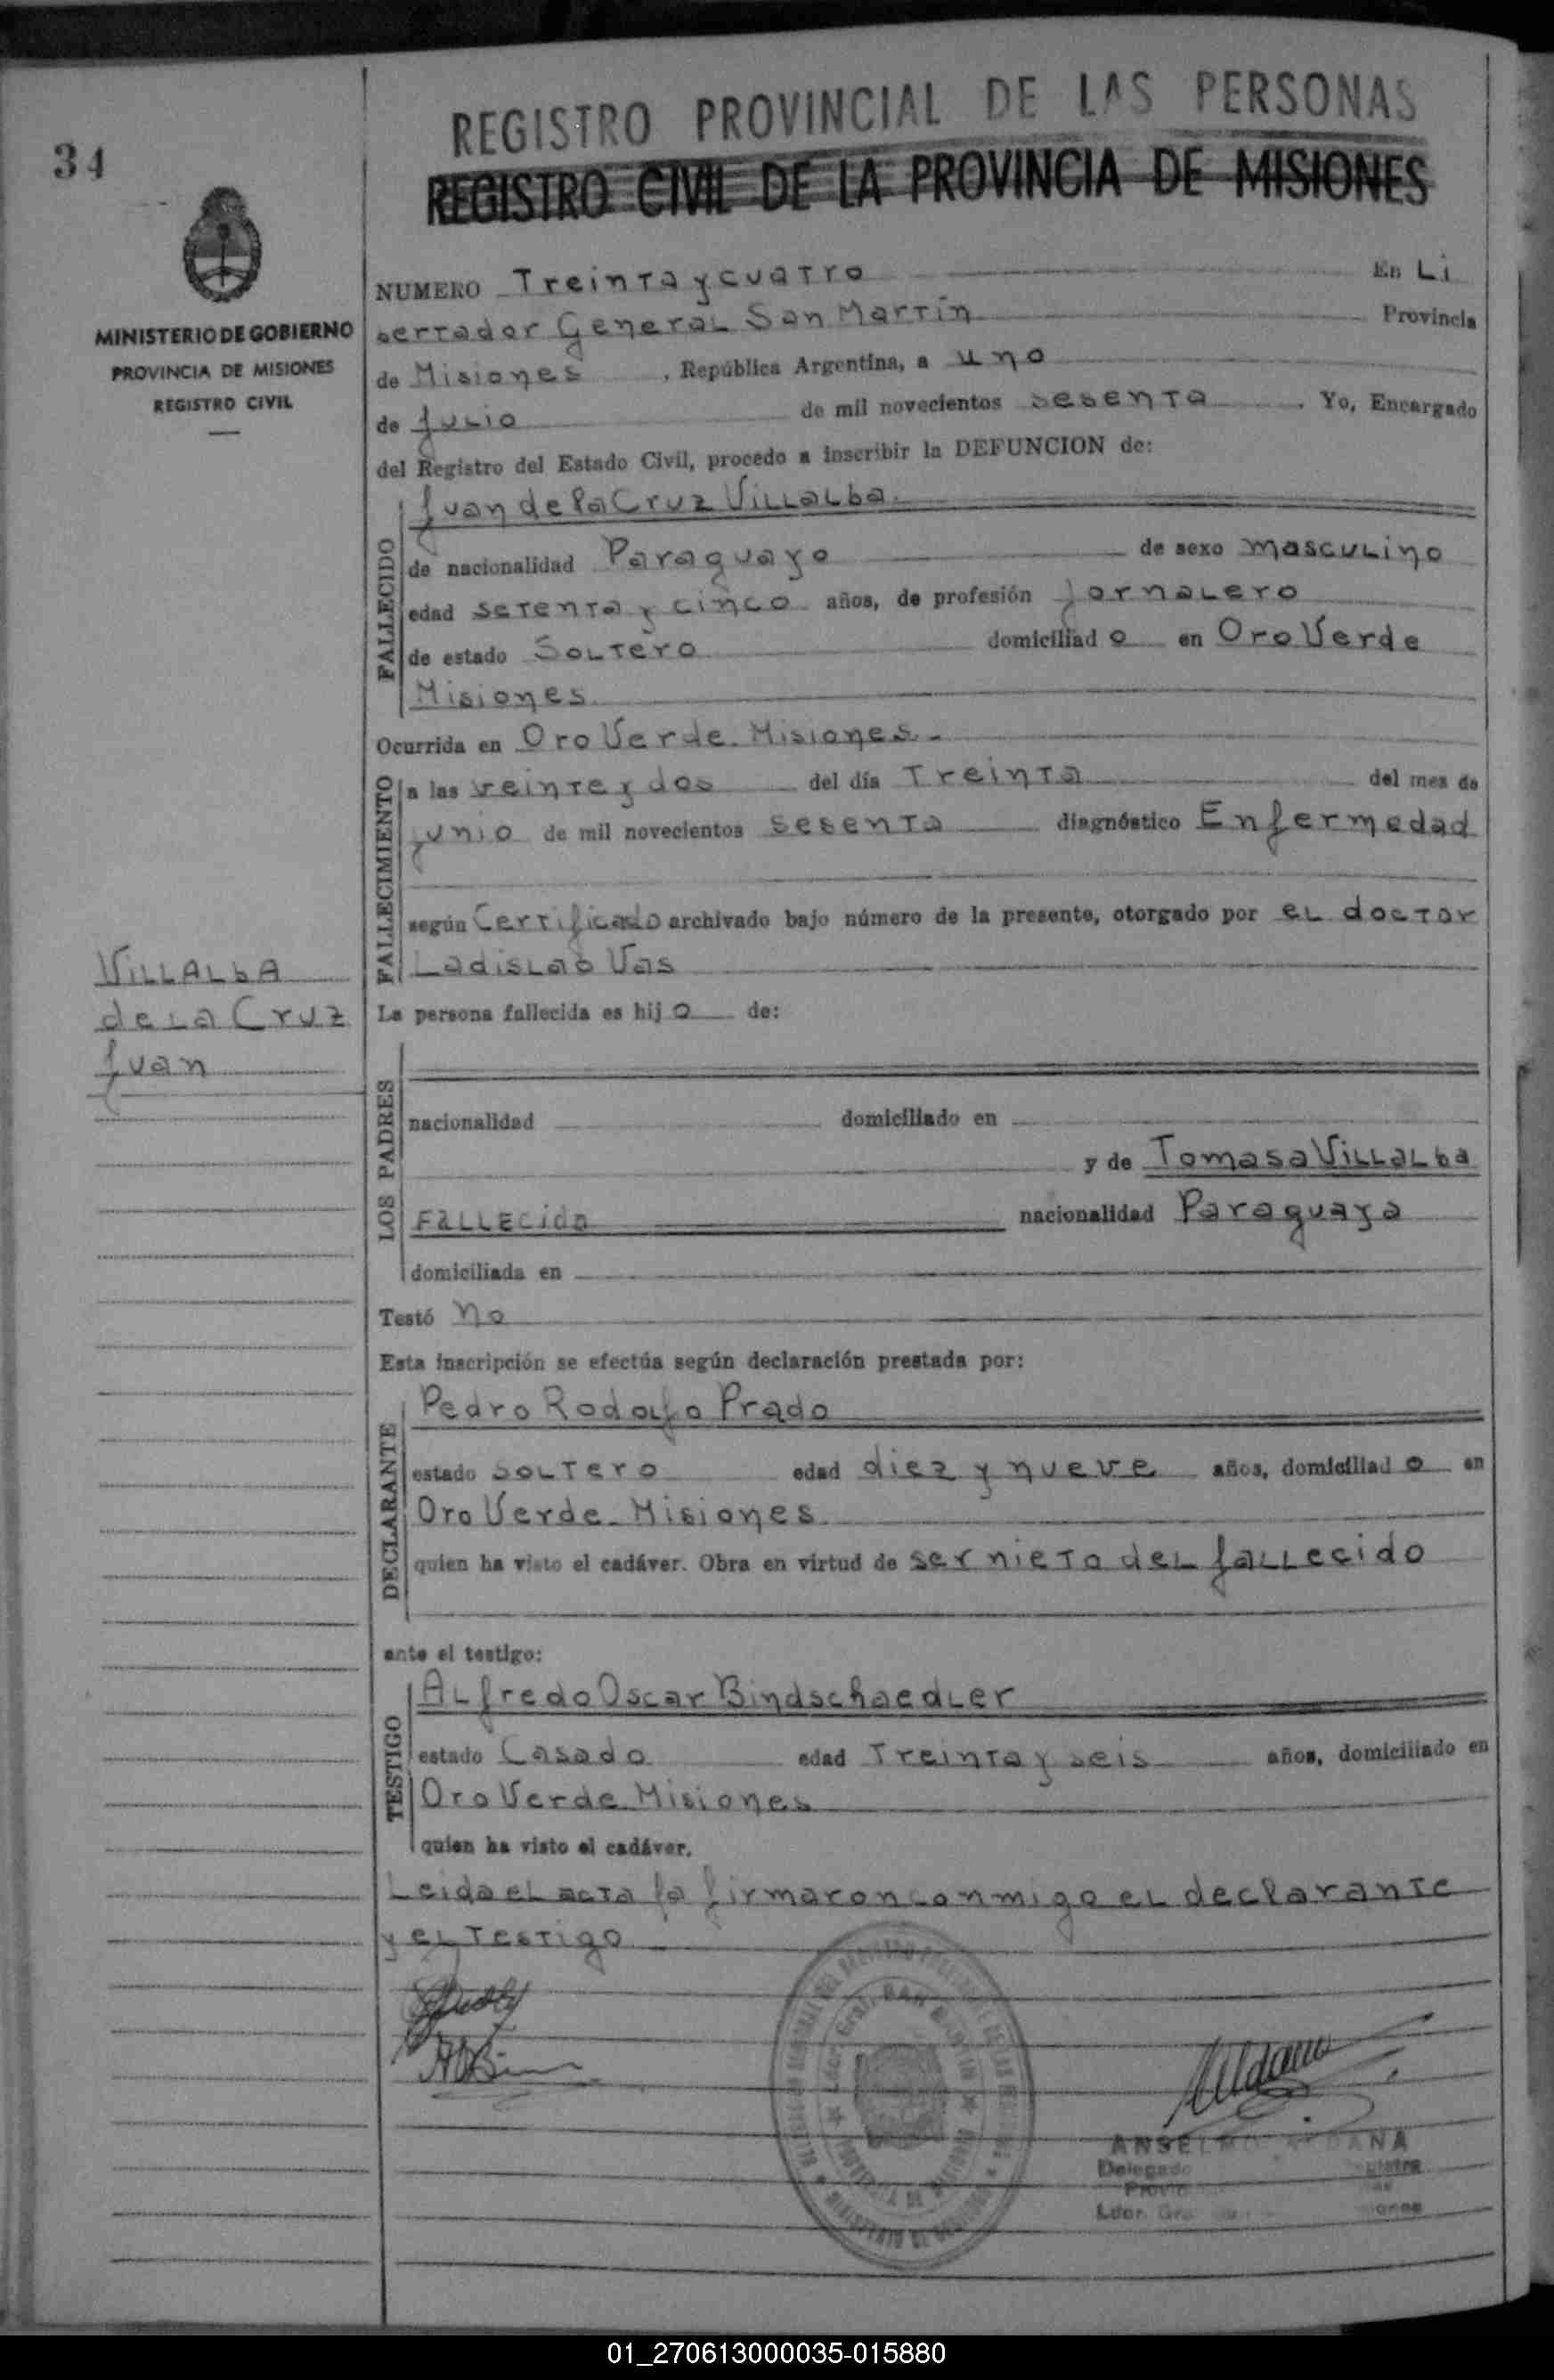 REGISTRO PROVINCIAL DE LAS PERSONAS
REGISTRO CIVIL DE LA PROVINCIA DE MISIONES
34
MINISTERIO DE GOBIERNO
PROVINCIA DE MISIONES
REGISTRO CIVIL
NUMERO Treinta y cuatro En Li
bertador General San Martín Provincia
de Misiones, República Argentina, a uno
de julio de mil novecientos sesenta. Yo, Encargado
del Registro del Estado Civil, procedo a inscribir la DEFUNCION de:
FALLECIDO
Juan de la Cruz Villalba.
de nacionalidad Paraguayo de sexo masculino
edad setenta y cinco años, de profesión jornalero
de estado Soltero domiciliado en Oro Verde
Misiones
Ocurrida en Oro Verde. Misiones.
FALLECIMIENTO
a las veinte y dos del día Treinta del mes de
junio de mil novecientos sesenta diagnóstico Enfermedad
según Certificado archivado bajo número de la presente, otorgado por el doctor
Ladislao Vas
VILLALBA
de la Cruz
Juan
La persona fallecida es hijo de:
LOS PADRES
nacionalidad domiciliado en
y de Tomasa Villalba
Fallecida nacionalidad Paraguaya
domiciliada en
Testó no
Esta inscripción se efectúa según declaración prestada por:
DECLARANTE
Pedro Rodolfo Prado
estado soltero edad diez y nueve años, domiciliado en
Oro Verde. Misiones
quien ha visto el cadáver. Obra en virtud de ser nieto del fallecido
ante el testigo:
TESTIGO
Alfredo Oscar Bindschaedler
estado Casado edad Treinta y seis años, domiciliado en
Oro Verde Misiones
quien ha visto el cadáver.
Leida el acta la firmaron conmigo el declarante
y el testigo
Ldor. Gral. SAN MARTIN
ANSELMO ALDANA
Delegado
Ldor. Gral
01_270613000035-015880